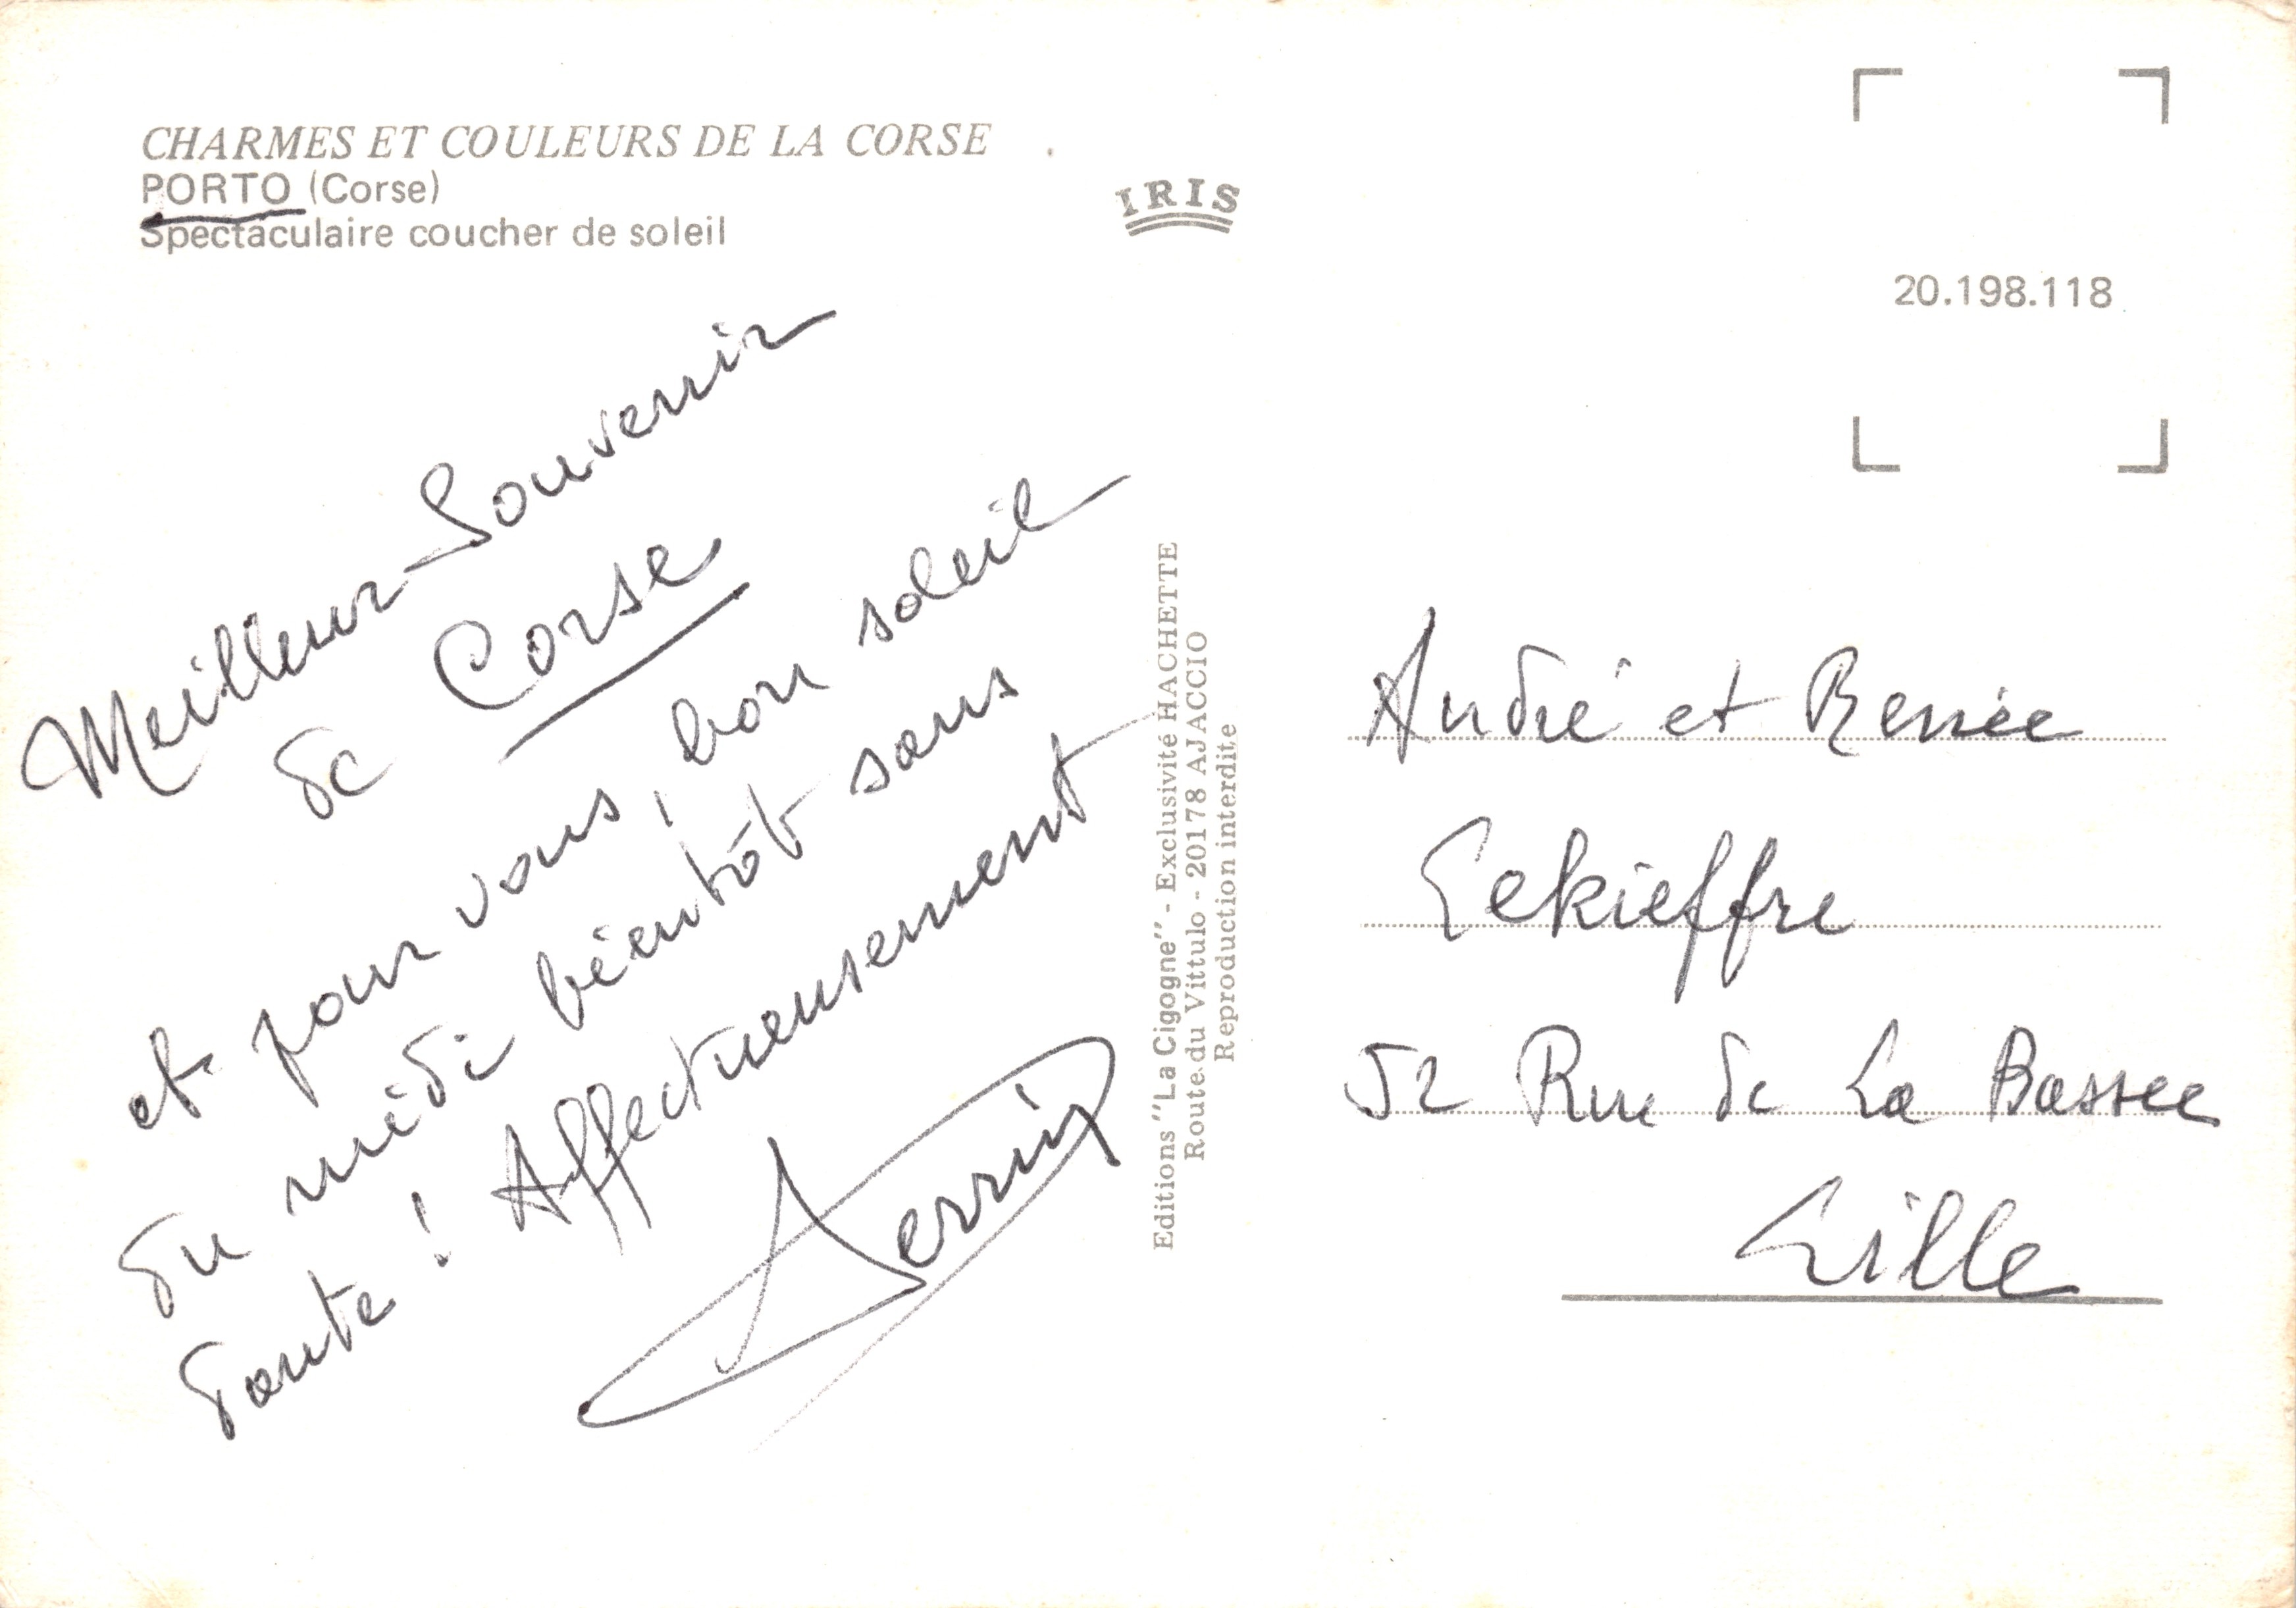 CHARMES ET COULEURS DE LA CORSE
PORTO (Corse)
Spectaculaire coucher de soleil
IRIS
20.198.118
Meilleur Souvenir
de Corse
et pour vous, bon soleil
du midi bientôt sans
doute ! Affectueusement
Editions "La Cigogne" - Exclusivité HACHETTE
Route du Vittulo - 20178 AJACCIO
Reproduction interdite
André et Renée
Lekieffre
52 Rue de La Bassee
Lille